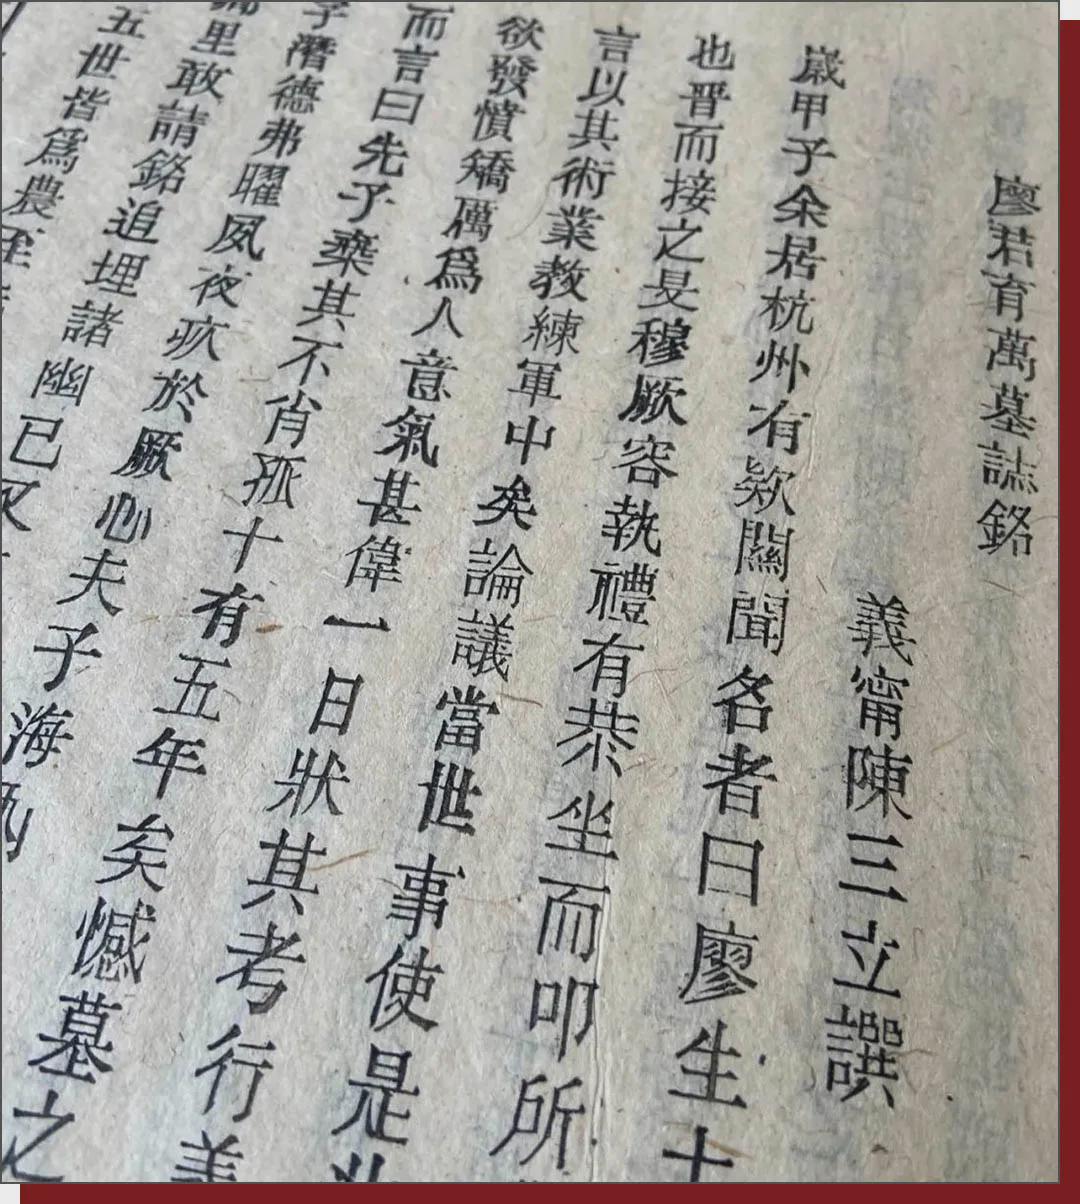 廖君有萬墓誌銘
義甯陳三立譔
嵗甲子余居杭州有欵關聞名者曰廖生士
也晋而接之旻穆厥容執禮有恭坐而叩所
言以其術業教練軍中矣論議當世事使是
欲發憤矯厲爲人意氣甚偉一日狀其考行
而言曰先子棄其不肖孤十有五年矣憾墓之
子潛德弗曜夙夜疚於厥心夫子海
里敢請銘追埋諸幽已又
五世皆爲農